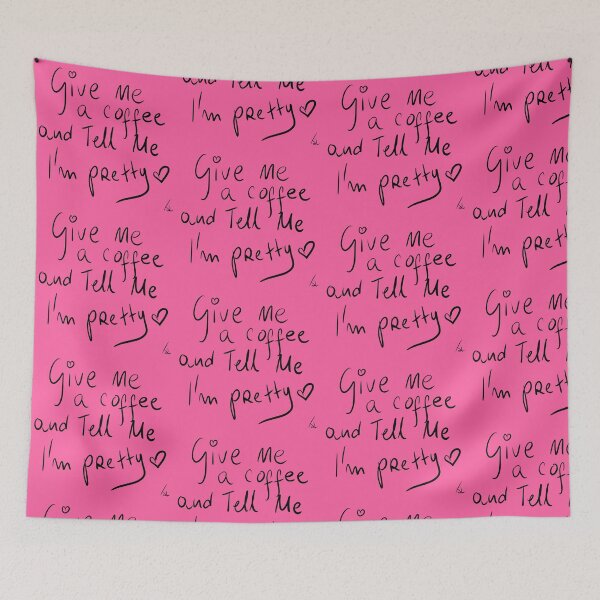 Give Me
a coffee
and Tell Me
I'm pretty♡
Give Me
a coffee
and Tell Me
I'm pretty♡
Give Me
a coffee
and Tell Me
I'm pretty♡
Give Me
and Tell Me
I'm pretty♡
Give Me
a coffee
and Tell Me
I'm pretty♡
Give Me
a coffee
and Tell Me
I'm pretty♡
Give Me
a coffee
and Tell Me
Give Me
a coffee
and Tell Me
I'm pretty♡
Give Me
a coffee
and Tell Me
I'm pretty♡
Give Me
a coffee
and Tell Me
I'm pretty♡
Give Me
and Tell Me
I'm pretty
Give Me
a coffee
and Tell Me
I'm pretty
Give Me
a coffee
and Tell Me
I'm pretty
Give Me
a coffee
and Tell Me